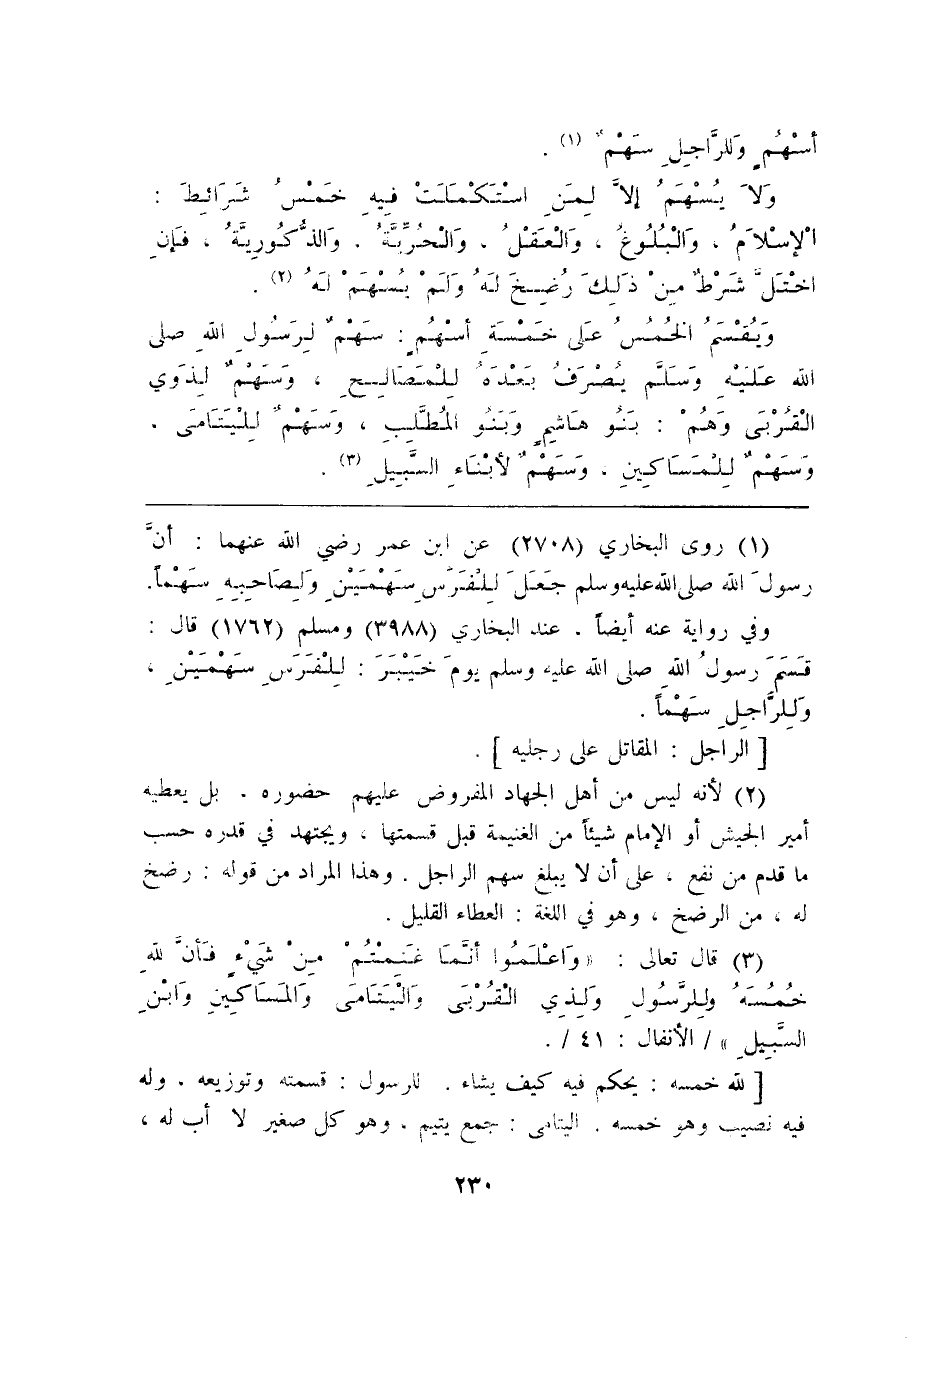 أَسْهُمٍ وَلِلرَّاجِلِ سَهْمٌ (١) .
وَلاَ يُسْهَمُ إلاَّ لِمَنِ اسْتَكْمَلَتْ فِيهِ خَمْسُ شَرَائِطَ :
الْإسْلاَمُ ، وَالْبُلُوغُ ، وَالْعَقْلُ ، وَالْحُرِّيَّةُ ، وَالذُّكُورِيَّةُ ، فَإنِ
اخْتَلَّ شَرْطٌ مِنْ ذَلِكَ رُضِخَ لَهُ وَلَمْ يُسْهَمْ لَهُ (٢) .
وَيُقْسَمُ الْخُمُسُ عَلَى خَمْسَةِ أسْهُمٍ : سَهْمٌ لِرَسُولِ اللهِ صلى
الله عَلَيْهِ وَسَلَّم يُصْرَفُ بَعْدَهُ لِلْمَصَالِحِ ، وَسَهْمٌ لِذَوِي
الْقُرْبَى وَهُمْ : بَنُو هَاشِمٍ وَبَنُو الْمُطَّلِبِ ، وَسَهْمٌ لِلْيَتَامَى .
وَسَهْمٌ لِلْمَسَاكِينِ ، وَسَهْمٌ لأبْنَاءِ السَّبِيلِ (٣) .
(١) روى البخاري (٢٧٠٨) عن ابن عمر رضي الله عنهما : أنَّ
رسولَ الله صلى الله عليه وسلم جَعَلَ لِلْفَرَسِ سَهْمَيْنِ وَلِصَاحِبِهِ سَهْماً.
وفي رواية عنه أيضاً . عند البخاري (٣٩٨٨) ومسلم (١٧٦٢) قال :
قَسَمَ رسولُ اللهِ صلى الله عليه وسلم يومَ خَيْبَرَ : لِلْفَرَسِ سَهْمَيْنِ ،
وَلِلرَّاجِلِ سَهْماً .
[ الراجل : المقاتل على رجليه ] .
(٢) لأنه ليس من أهل الجهاد المفروض عليهم حضوره . بل يعطيه
أمير الجيش أو الإمام شيئاً من الغنيمة قبل قسمتها ، ويجتهد في قدره حسب
ما قدم من نفع ، على أن لا يبلغ سهم الراجل . وهذا المراد من قوله : رضخ
له ، من الرضخ ، وهو في اللغة : العطاء القليل .
(٣) قال تعالى : « وَاعْلَمُوا أنَّمَا غَنِمْتُمْ مِنْ شَيْءٍ فَأنَّ للهِ
خُمُسَهُ ولِلرَّسُولِ وَلِذِي الْقُرْبَى وَالْيَتَامَى وَالْمَسَاكِينِ وَابْنِ
السَّبِيلِ » / الأنفال : ٤١ / .
[ لله خمسه : يحكم فيه كيف يشاء . للرسول : قسمته وتوزيعه . وله
فيه نصيب وهو خمسه . اليتامى : جمع يتيم . وهو كل صغير لا أب له ،
٢٣٠